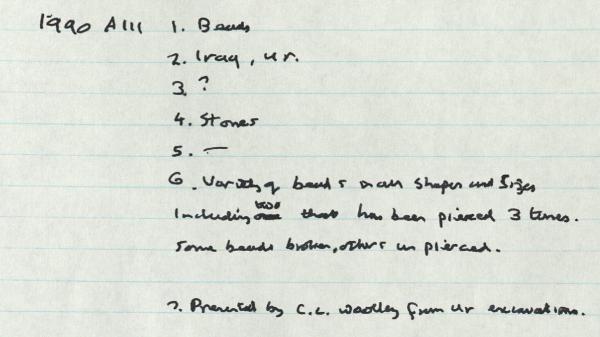 1990 A111 1. Beads
2. Iraq, Ur.
3. ?
4. Stones
5. —
6. Variety of beads in all shapes and sizes
Including two that has been pierced 3 times.
Some beads broken, others unpierced.
7. Presented by C.L. Woolley from Ur excavations.